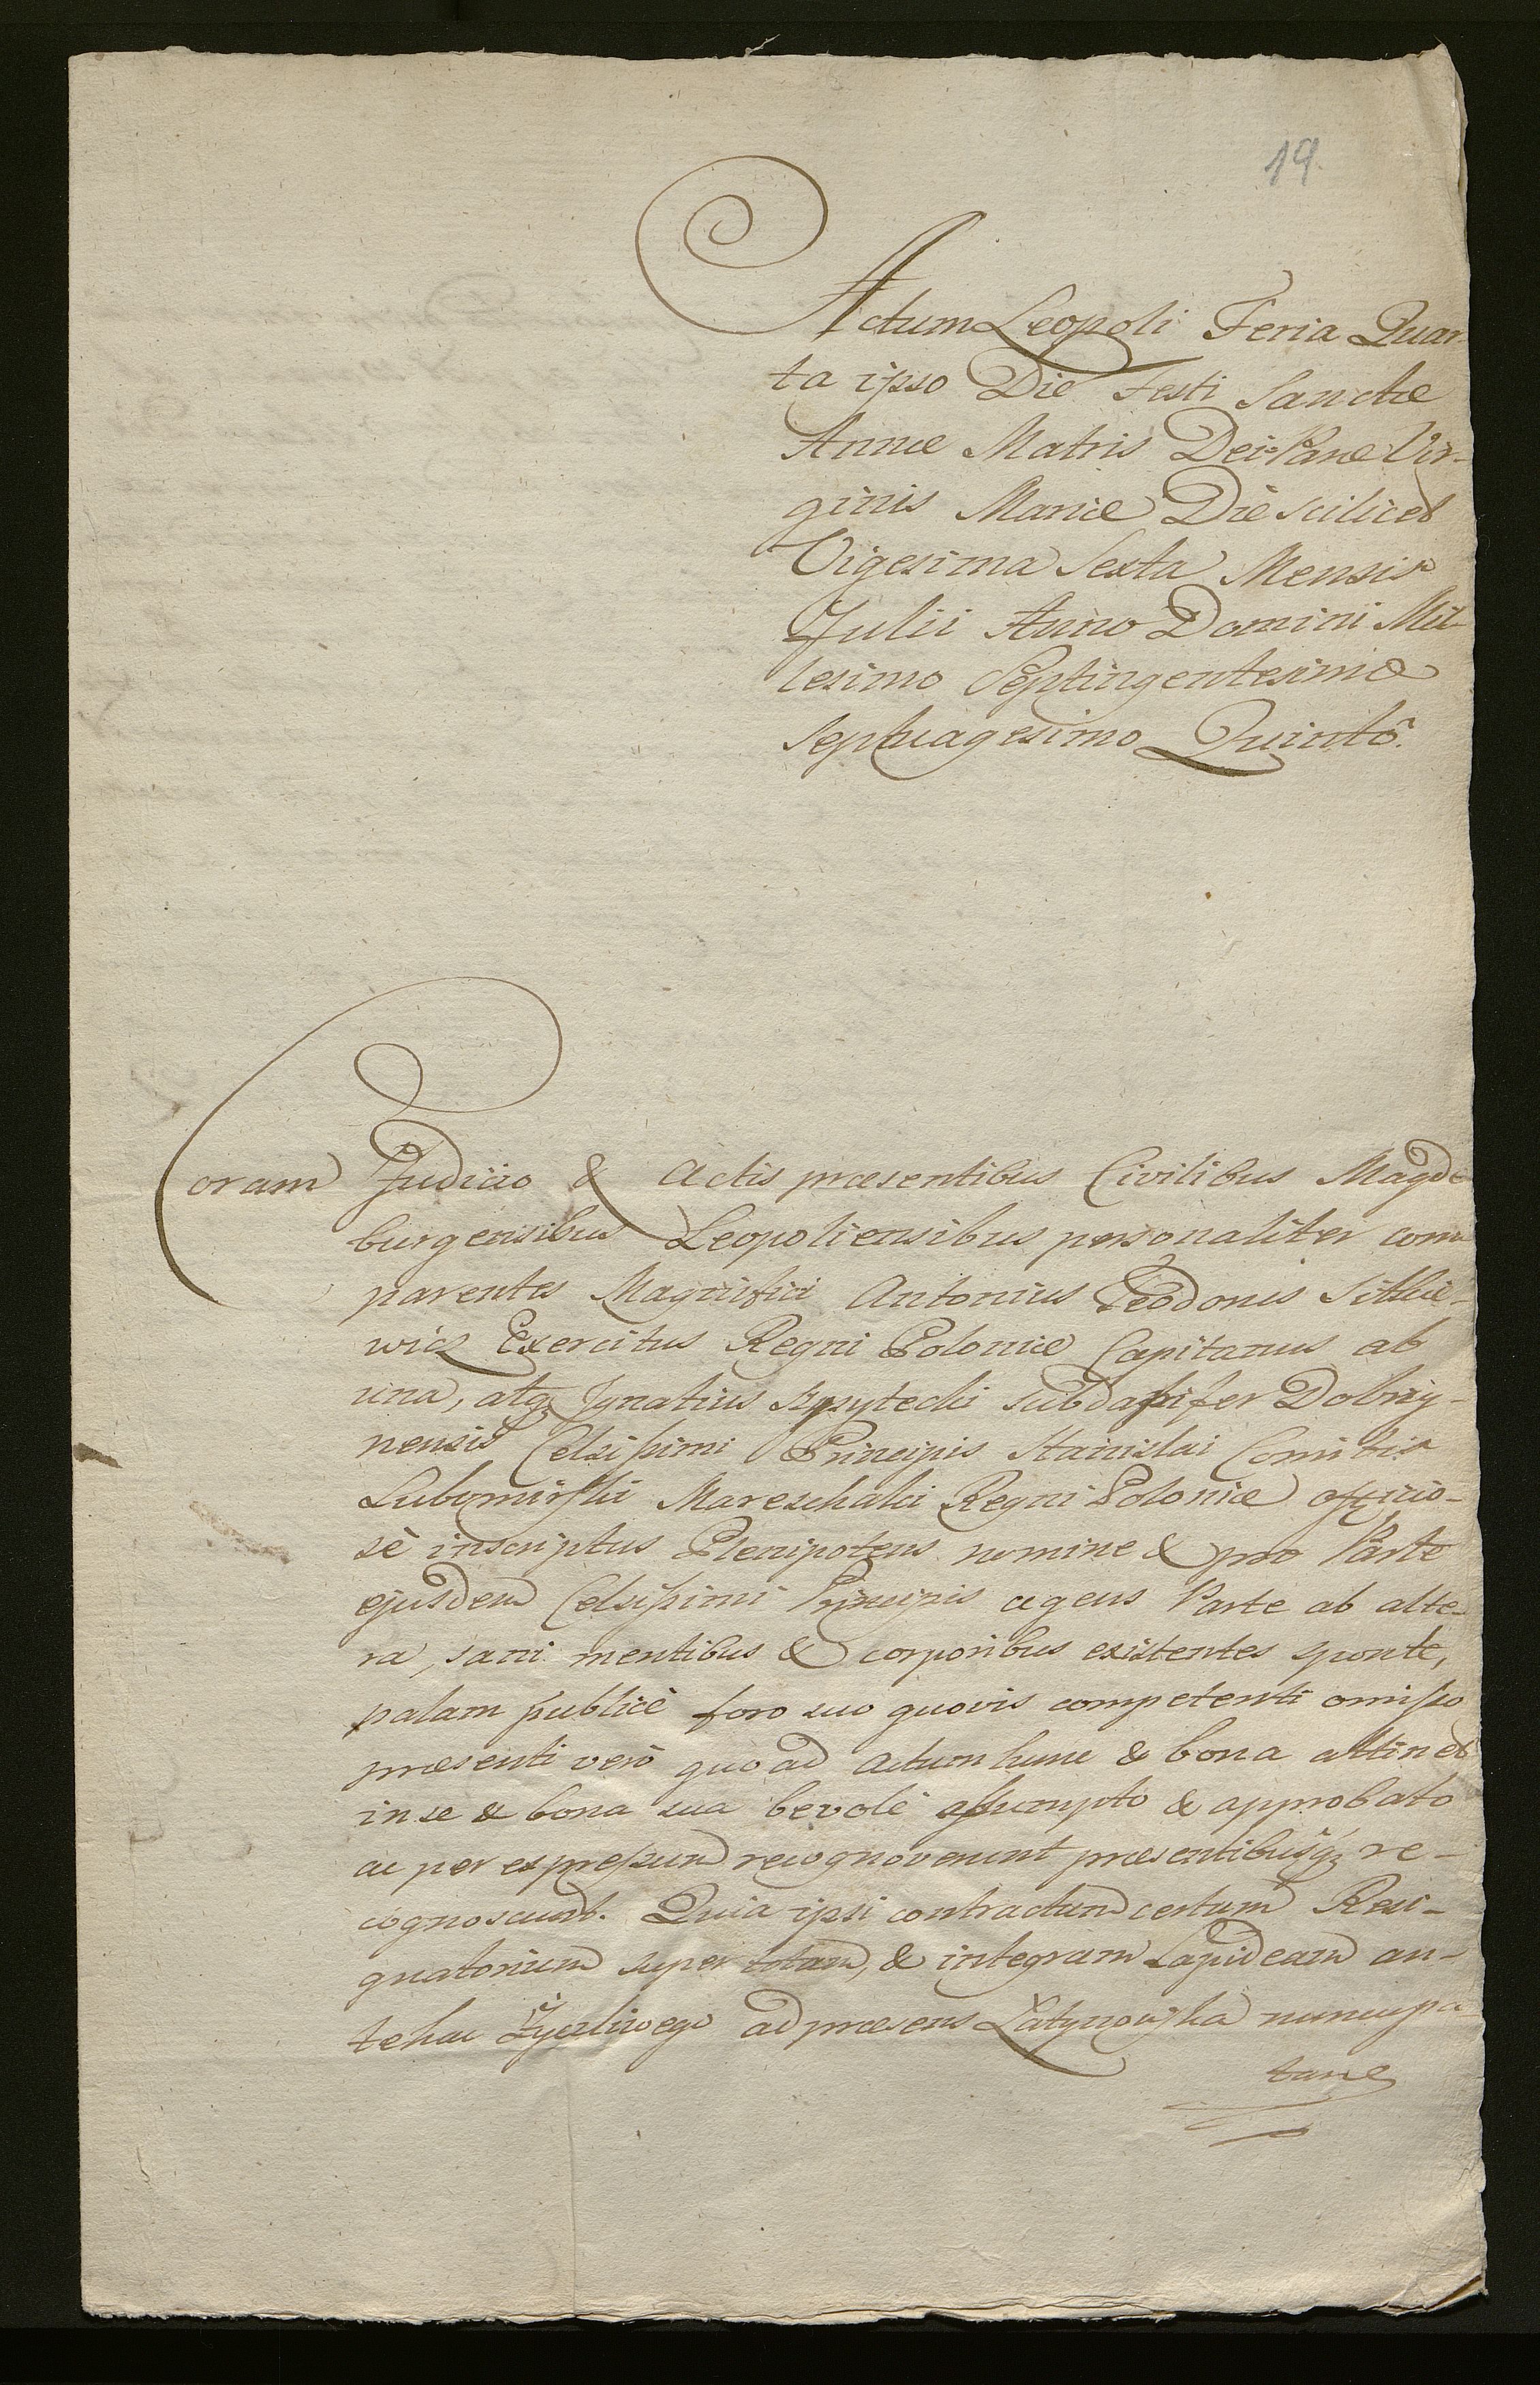 19.
Actum Leopoli Feria Quar-
ta ipso Die Festi Sanctæ
Annæ Matris Dei Paræ Vir-
ginis Mariæ Die scilicet
Vigesima Sexta Mensis
Julii Anno Domini Mil-
lesimo Septingentesimo
Septuagesimo Quintô.
Coram Judicio & Actis præsentibus Civilibus Magde
burgensibus Leopoliensibus personaliter com
parentes Magnifici Antonius Teodorus
wicz Exercitus Regni Poloniæ Capitanus ab
una, atq; Ignatius subdapifer Dobrzy-
nensis Celsissimi Principis Stanislai Comitis
Lubomirski Mareschalci Regni Poloniæ officio-
sè inscriptus Plenipotens nomine & pro Parte
ejusdem Celsissimi Principis agens Parte ab alte-
ra, sani mentibus & corporibus existentes sponte,
palam publicè foro suo quovis competenti omisso
præsenti verò quoad Actum hunc & bona attinet
in se & bona sua bevolè assumpto & approbato
ac per expressum recognoverunt præsentibusq; re-
cognoscunt. Quia ipsi contractum certum Resi-
gnatorium super totam, & integram Lapideam an-
tehac Życzliwego ad præsens Łatynowska nuncupa
tam